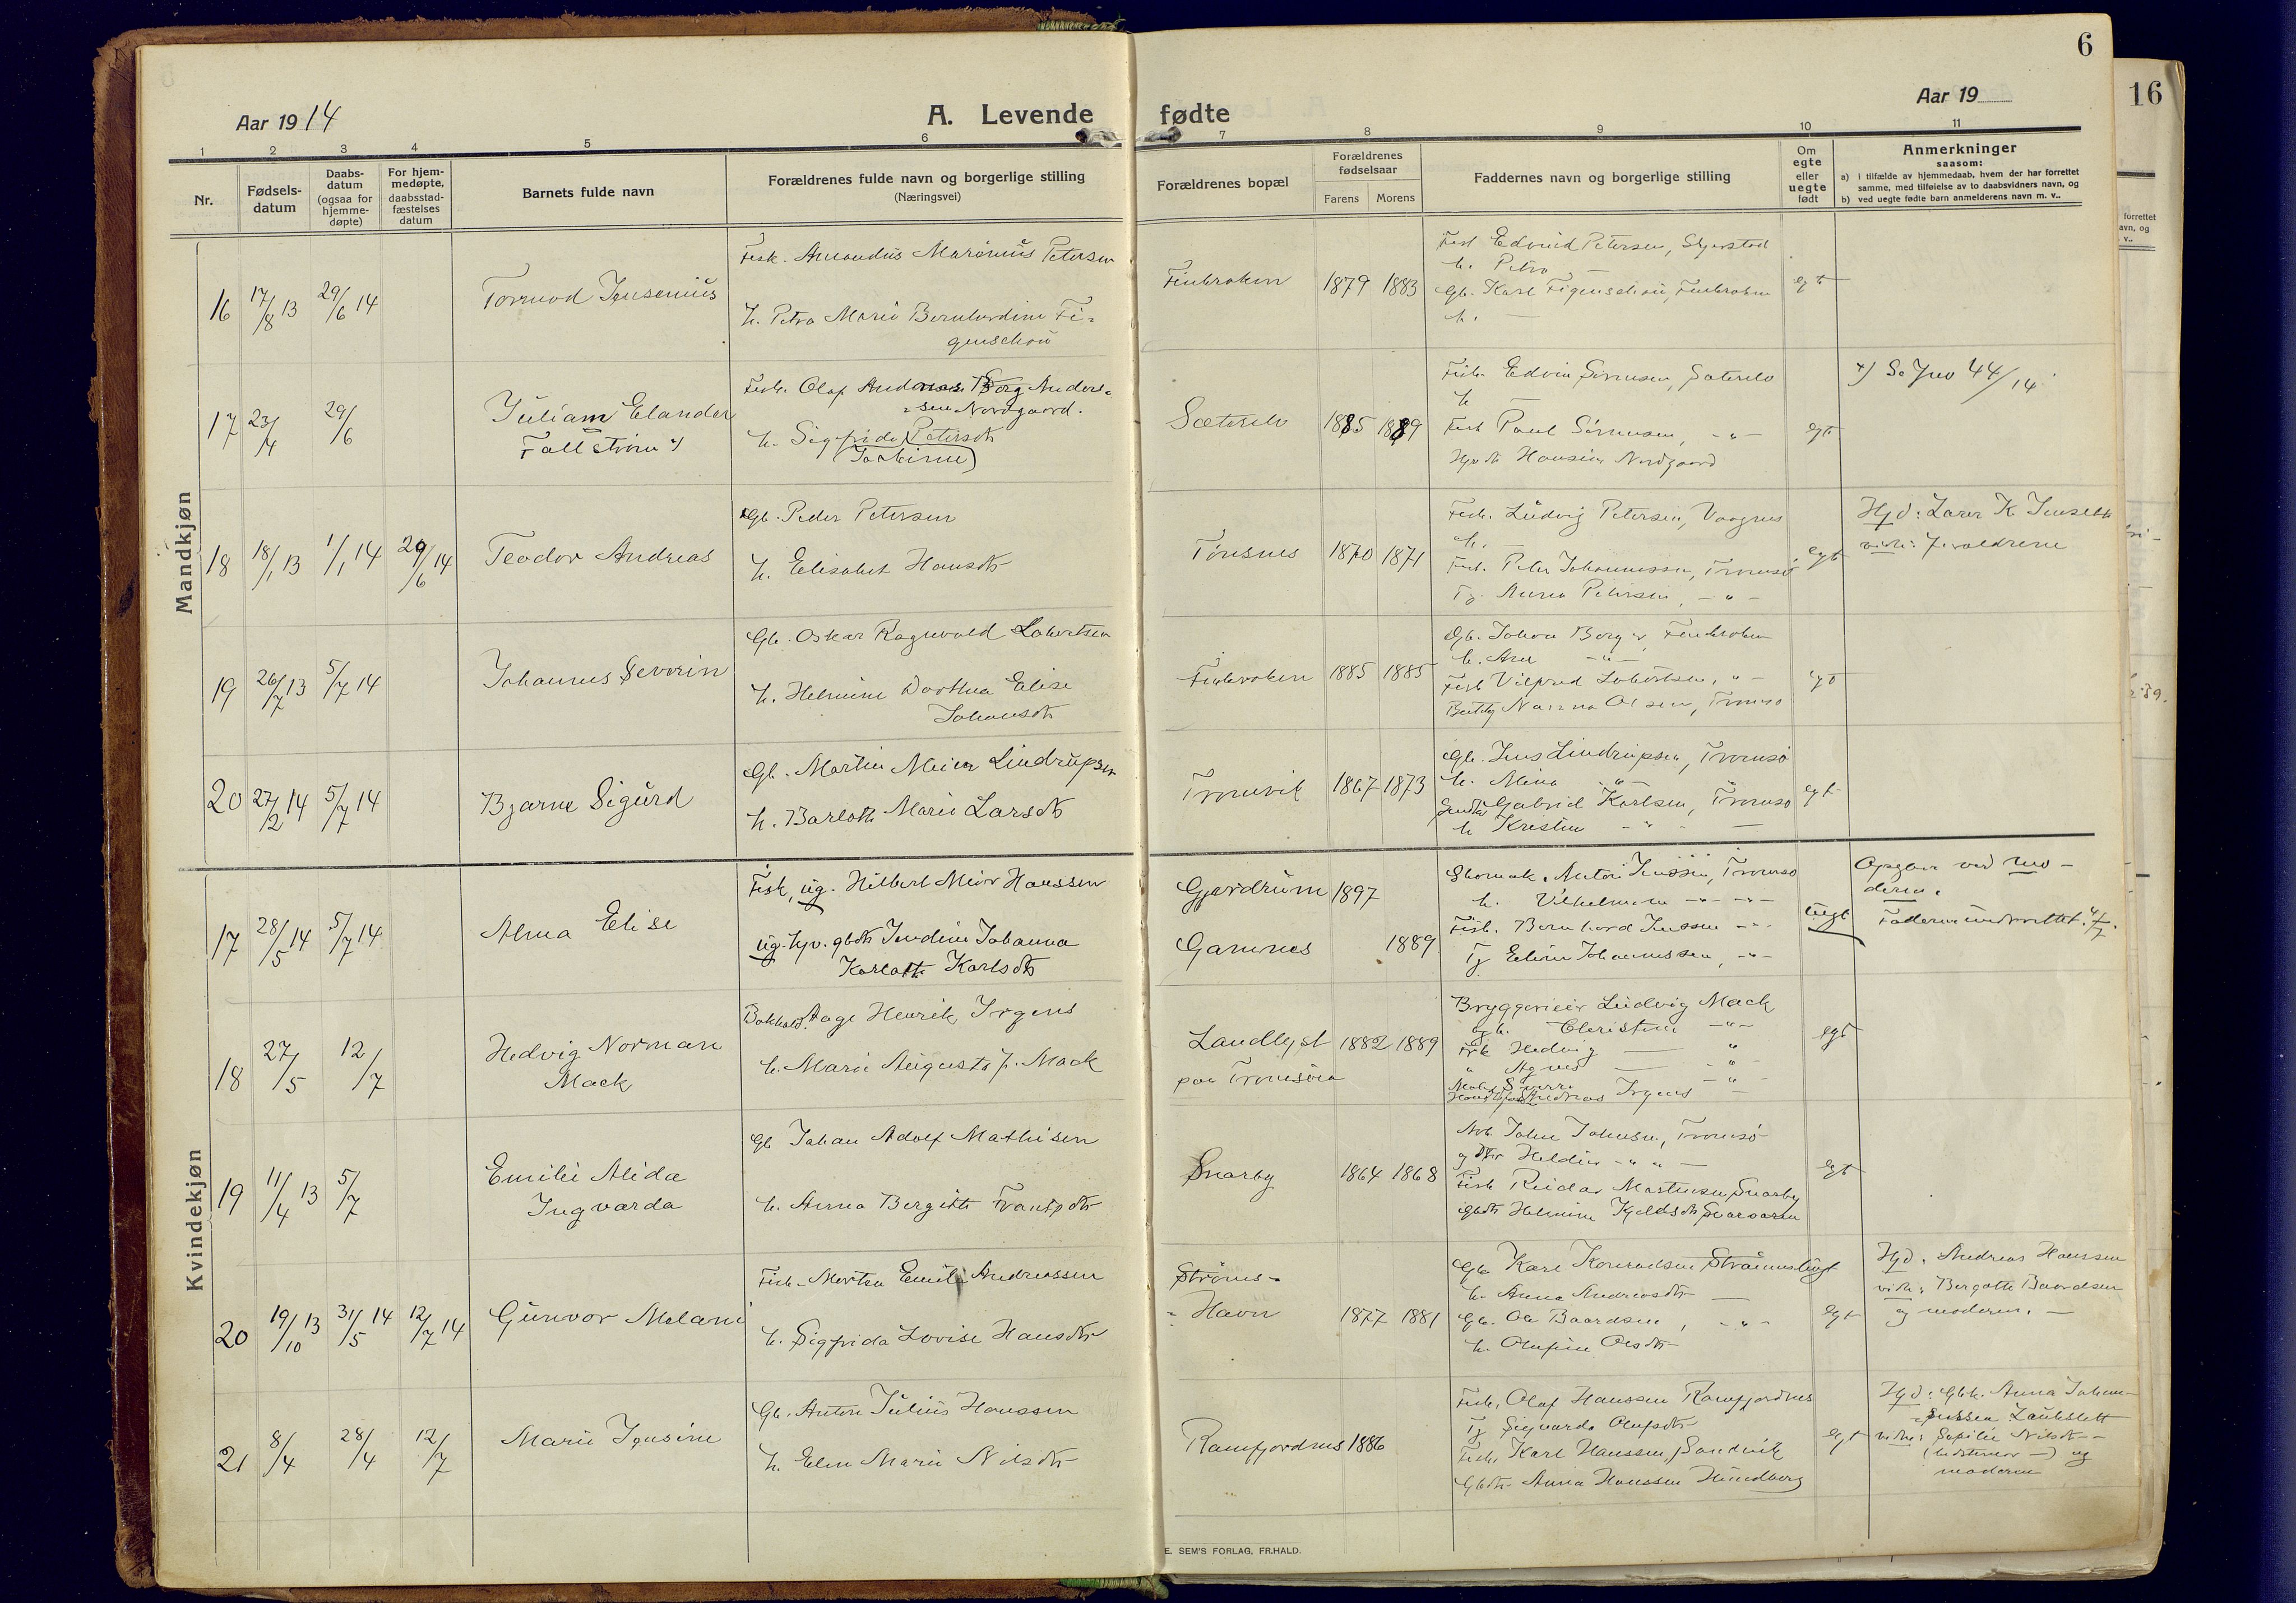 6
16
Aar 1914
A. Levende fødte
Aar 19
1 2 3 4 5 6 7 8 9 10 11
Nr.
Fødsels-
datum
Daabs-
datum
(ogsaa for
hjemme-
døpte)
For hjem-
medøpte,
daabsstad-
fæstelses
datum
Barnets fulde navn
Forældrenes fulde navn og borgerlige stilling
(Næringsvei)
Forældrenes bopæl
Forældrenes
fødselsaar
Farens Morens
Faddernes navn og borgerlige stilling
Om
egte
eller
uegte
født
Anmerkninger
saasom:
a) i tilfælde av hjemmedaab, hvem der har forrettet
samme, med tilføielse av to daabsvidners navn, og
b) ved uegte fødte barn anmelderens navn m. v..
forrettet
avn, og
v..
Mandkjøn
16 17/8 13 29/6 14
Tormod Jensenius
Fisk. Amandus Marónius Petersen
h. Petra Marie Bernhardine Fi-
genschou
Finkroken 1879 1883
Fisk Edvind Petersen, Skjerstad
h. Petra —
Gb. Karl Figenschou, Finkroken
h. —
egt
17 23/4 29/6
Juliam Elander
Fallstrøm
Fisk. Olaf Andreas Borg Anders-
-sen Nordgaard.
h. Sigfrida Petersdt
Sæterelv 1885 1889
Fisk Edvin Sørensen, Sæterelv
h —
Fisk Paul Sørensen, -"-
Hansine Nordgaard
egt
Se Jno 44/14
18 18/1 13 1/1 14 29/6 14
Teodor Andreas
Gb. Peder Petersen
h. Elisabet Hansdt
Tønsnes 1870 1871
Fisk. Ludvig Petersen, Vaagnes
h. —
Fisk. Peter Johannessen, Tromsø
Tj. Anna Petersen, -"-
egt
Hjd: Lærer K. Jensen
vidn: forældrene
19 26/7 13 5/7 14
Johannes Severin
Gb. Oskar Ragnvald Lobertsen
h. Helmine Dorthea Elise
Johansdt
Finkroken 1885 1885
Gb. Johan Berg, Finkroken
h. -"-
Fisk Vilfred Lobertsen, "-
Nanna Olsen, Tromsø
egt
20 27/2 14 5/7 14
Bjarne Sigurd
Gb. Martin Meier Lindrupsen
h. Barlotte Marie Larsdt
Tromvik 1867 1873
Gb. Jens Lindrupsen, Tromsø
h. Mina -"-
Gabriel Karlsen, Tromsø
h Kristine -"-
egt
Kvindekjøn
17 28/5 14 5/7 14
Alma Elise
Fisk, ug. Hilbert Meier Hanssen
ug. hjv. gbdt Jendine Johanna
Karlotte Karlsdt
Gjerdrum 1897
Gamnes 1889
Skomak. Anton Jenssen, Tromsø
h. Vilhelmine -"-
Fisk. Bernhard Jenssen -"-
Tj Eline Johannessen, -"-
uegt
Opgaver ved mo-
deren.
Faderen underrettet 4/7.
18 27/5 12/7
Hedvig Norman
Mack
Bokhold. Aage Henrik Irgens
h. Marie Augusta f. Mack
Landlyst
paa Tromsøen
1882 1889
Bryggerieier Ludvig Mack
og h. Christine -"-
Frk Hedvig — "
" Agnes — "
Andreas Irgens -"-
egt
19 11/4 13 5/7
Emilie Alida
Ingvarda
Gb Johan Adolf Mathisen
h. Anna Bergitte Frantsdt
Snarby 1864 1868
Arb. Johan Johnsen, Tromsø
og Heldine -"-
Fisk Reidar Martinsen, Snarby
gbdt Helmine Kjeldsdt
egt
20 19/10 13 31/5 14 12/7 14
Gunvor Melani
Fisk. Morten Emil Andreassen
h. Sigfrida Lovise Hansdt
Strøms-
-Havn
1877 1881
Gb Karl Konradsen
h. Anna Andreasdt —
Gb. Ole Baardsen, -"-
h. Olufine Olsdt
egt
Hjd: Andreas Hanssen
vidn: Bergitte Baardsen
og moderen. —
21 8/4 28/4 12/7
Marie Jensine
Gb. Anton Julius Hanssen
h. Elen Marie Nilsdt
Ramfjordnes 1886
Fisk. Olaf Hanssen Ramfjordnes
Tj Sigvarda Olufsdt
Fisk. Karl Hanssen, Sandvik
Gbdt. Anna Hanssen Hundberg
egt
Hjd: Gbk. Anna Johan-
-nessen Laukslett
vidn: Nilsdt
(bestemor —) og
moderen
E. SEM'S FORLAG, FR.HALD.